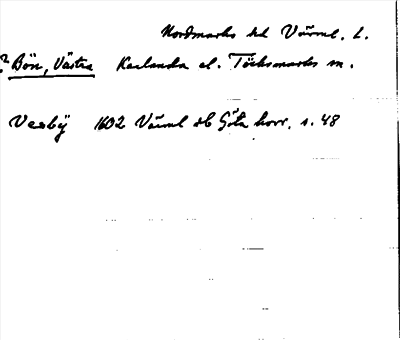 Nordmarks hd Värml. L.
? Bön, Västra Karlanda el. Töcksmarks sn.
Vesby 1602 Värml ob Göta hovr. s. 48